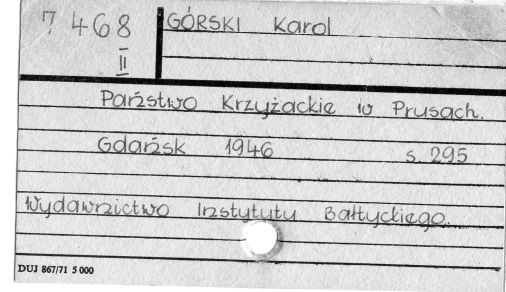 7468
II
GÓRSKI Karol
Państwo Krzyżackie w Prusach.
Gdańsk 1946 s. 295
Wydawnictwo Instytutu Bałtyckiego.
DUJ 867/71 5 000